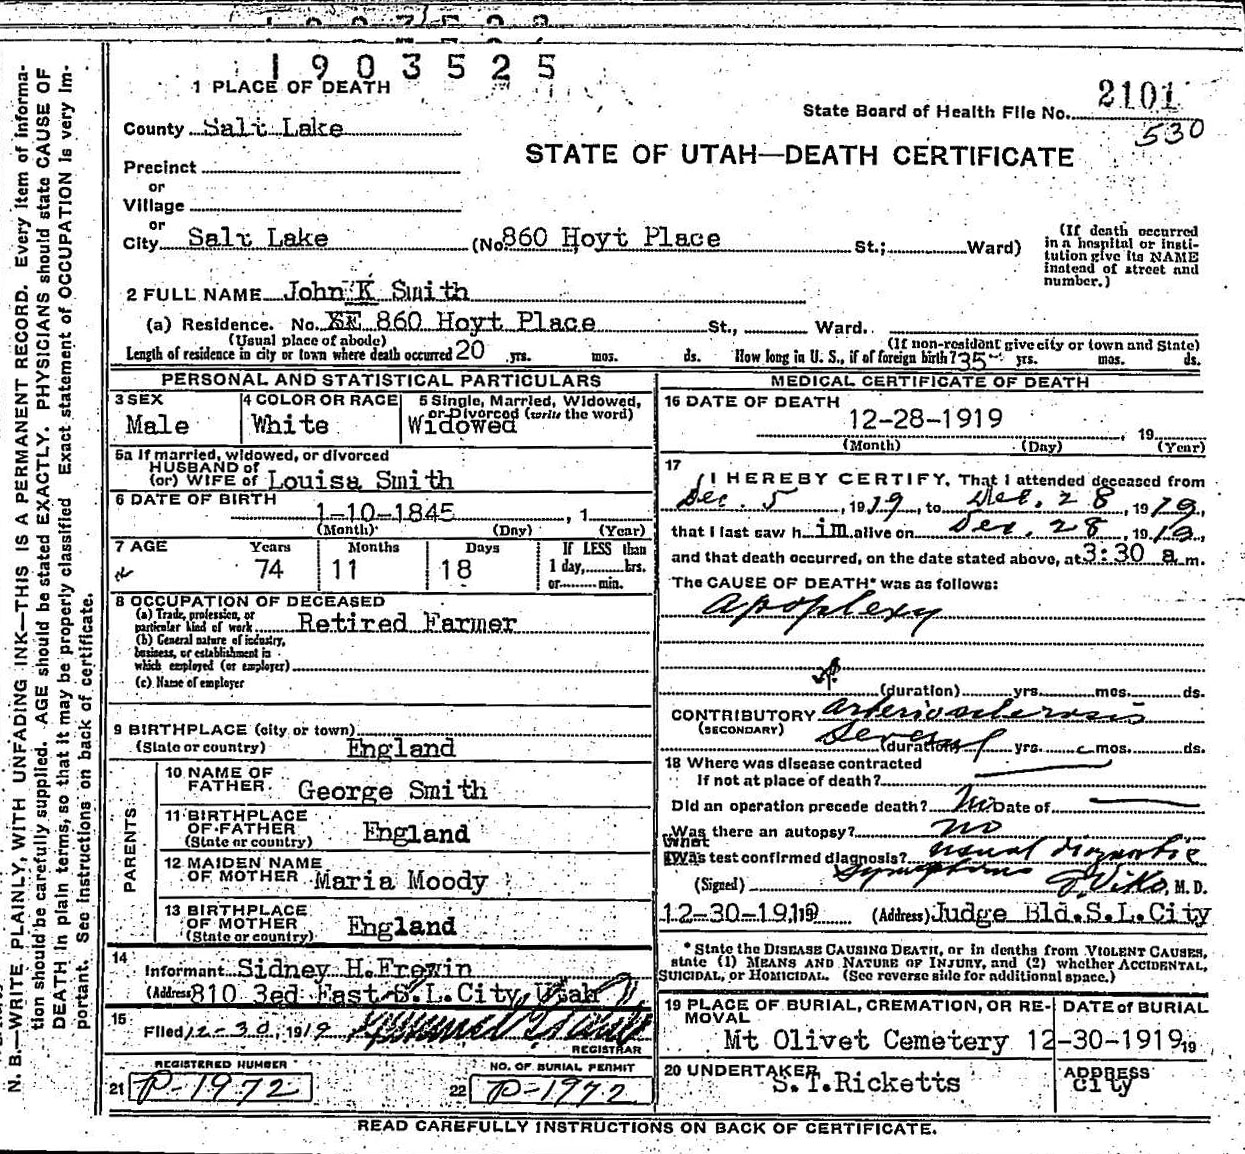 1903525
1 PLACE OF DEATH
State Board of Health File No. 2101
530
County Salt Lake
STATE OF UTAH—DEATH CERTIFICATE
Precinct
or
Village
or
City Salt Lake (No. 860 Hoyt Place St.; Ward)
(If death occurred in a hospital or institution give its NAME instead of street and number.)
2 FULL NAME John K Smith
(a) Residence. No. 860 Hoyt Place St., Ward.
(Usual place of abode) (If non-resident give city or town and State)
Length of residence in city or town where death occurred 20 yrs. mos. ds. How long in U. S., if of foreign birth? 35 yrs. mos. ds.
PERSONAL AND STATISTICAL PARTICULARS
3 SEX Male
4 COLOR OR RACE White
5 Single, Married, Widowed, or Divorced (write the word)
Widowed
5a If married, widowed, or divorced
HUSBAND of
(or) WIFE of Louisa Smith
6 DATE OF BIRTH
1-10-1845, 1
(Month) (Day) (Year)
7 AGE Years Months Days If LESS than
74 11 18 1 day, hrs.
or min.
8 OCCUPATION OF DECEASED
(a) Trade, profession, or
particular kind of work Retired Farmer
(b) General nature of industry,
business, or establishment in
which employed (or employer)
(c) Name of employer
9 BIRTHPLACE (city or town)
(State or country) England
PARENTS
10 NAME OF
FATHER George Smith
11 BIRTHPLACE
OF FATHER
(State or country) England
12 MAIDEN NAME
OF MOTHER Maria Moody
13 BIRTHPLACE
OF MOTHER
(State or country) England
14
Informant Sidney H. Frewin
(Address) 810 3ed East S.L.City, Utah
15
Filed 12-30, 1919
REGISTRAR
REGISTERED NUMBER
21 P-1972
NO. OF BURIAL PERMIT
22 P-1972
MEDICAL CERTIFICATE OF DEATH
16 DATE OF DEATH
12-28-1919, 19
(Month) (Day) (Year)
17
I HEREBY CERTIFY, That I attended deceased from
Dec. 5, 1919, to Dec. 28, 1919,
that I last saw him alive on Dec. 28, 1919,
and that death occurred, on the date stated above, at 3:30 a m.
The CAUSE OF DEATH* was as follows:
Apoplexy
(duration) yrs. mos. ds.
CONTRIBUTORY arteriosclerosis
(SECONDARY)
Several (duration) yrs. mos. ds.
18 Where was disease contracted
If not at place of death?
Did an operation precede death? No Date of
Was there an autopsy? no
What
test confirmed diagnosis? usual diagnostic
symptoms
(Signed) Viko, M. D.
12-30-1919 (Address) Judge Bld.S.L.City
* State the DISEASE CAUSING DEATH, or in deaths from VIOLENT CAUSES,
state (1) MEANS AND NATURE OF INJURY, and (2) whether ACCIDENTAL,
SUICIDAL, or HOMICIDAL. (See reverse side for additional space.)
19 PLACE OF BURIAL, CREMATION, OR REMOVAL
Mt Olivet Cemetery
DATE of BURIAL
12-30-1919, 19
20 UNDERTAKER
S.T.Ricketts
ADDRESS
city
READ CAREFULLY INSTRUCTIONS ON BACK OF CERTIFICATE.
N. B.—WRITE PLAINLY, WITH UNFADING INK—THIS IS A PERMANENT RECORD. Every item of informa-
tion should be carefully supplied. AGE should be stated EXACTLY. PHYSICIANS should state CAUSE OF
DEATH in plain terms, so that it may be properly classified. Exact statement of OCCUPATION is very im-
portant. See instructions on back of certificate.